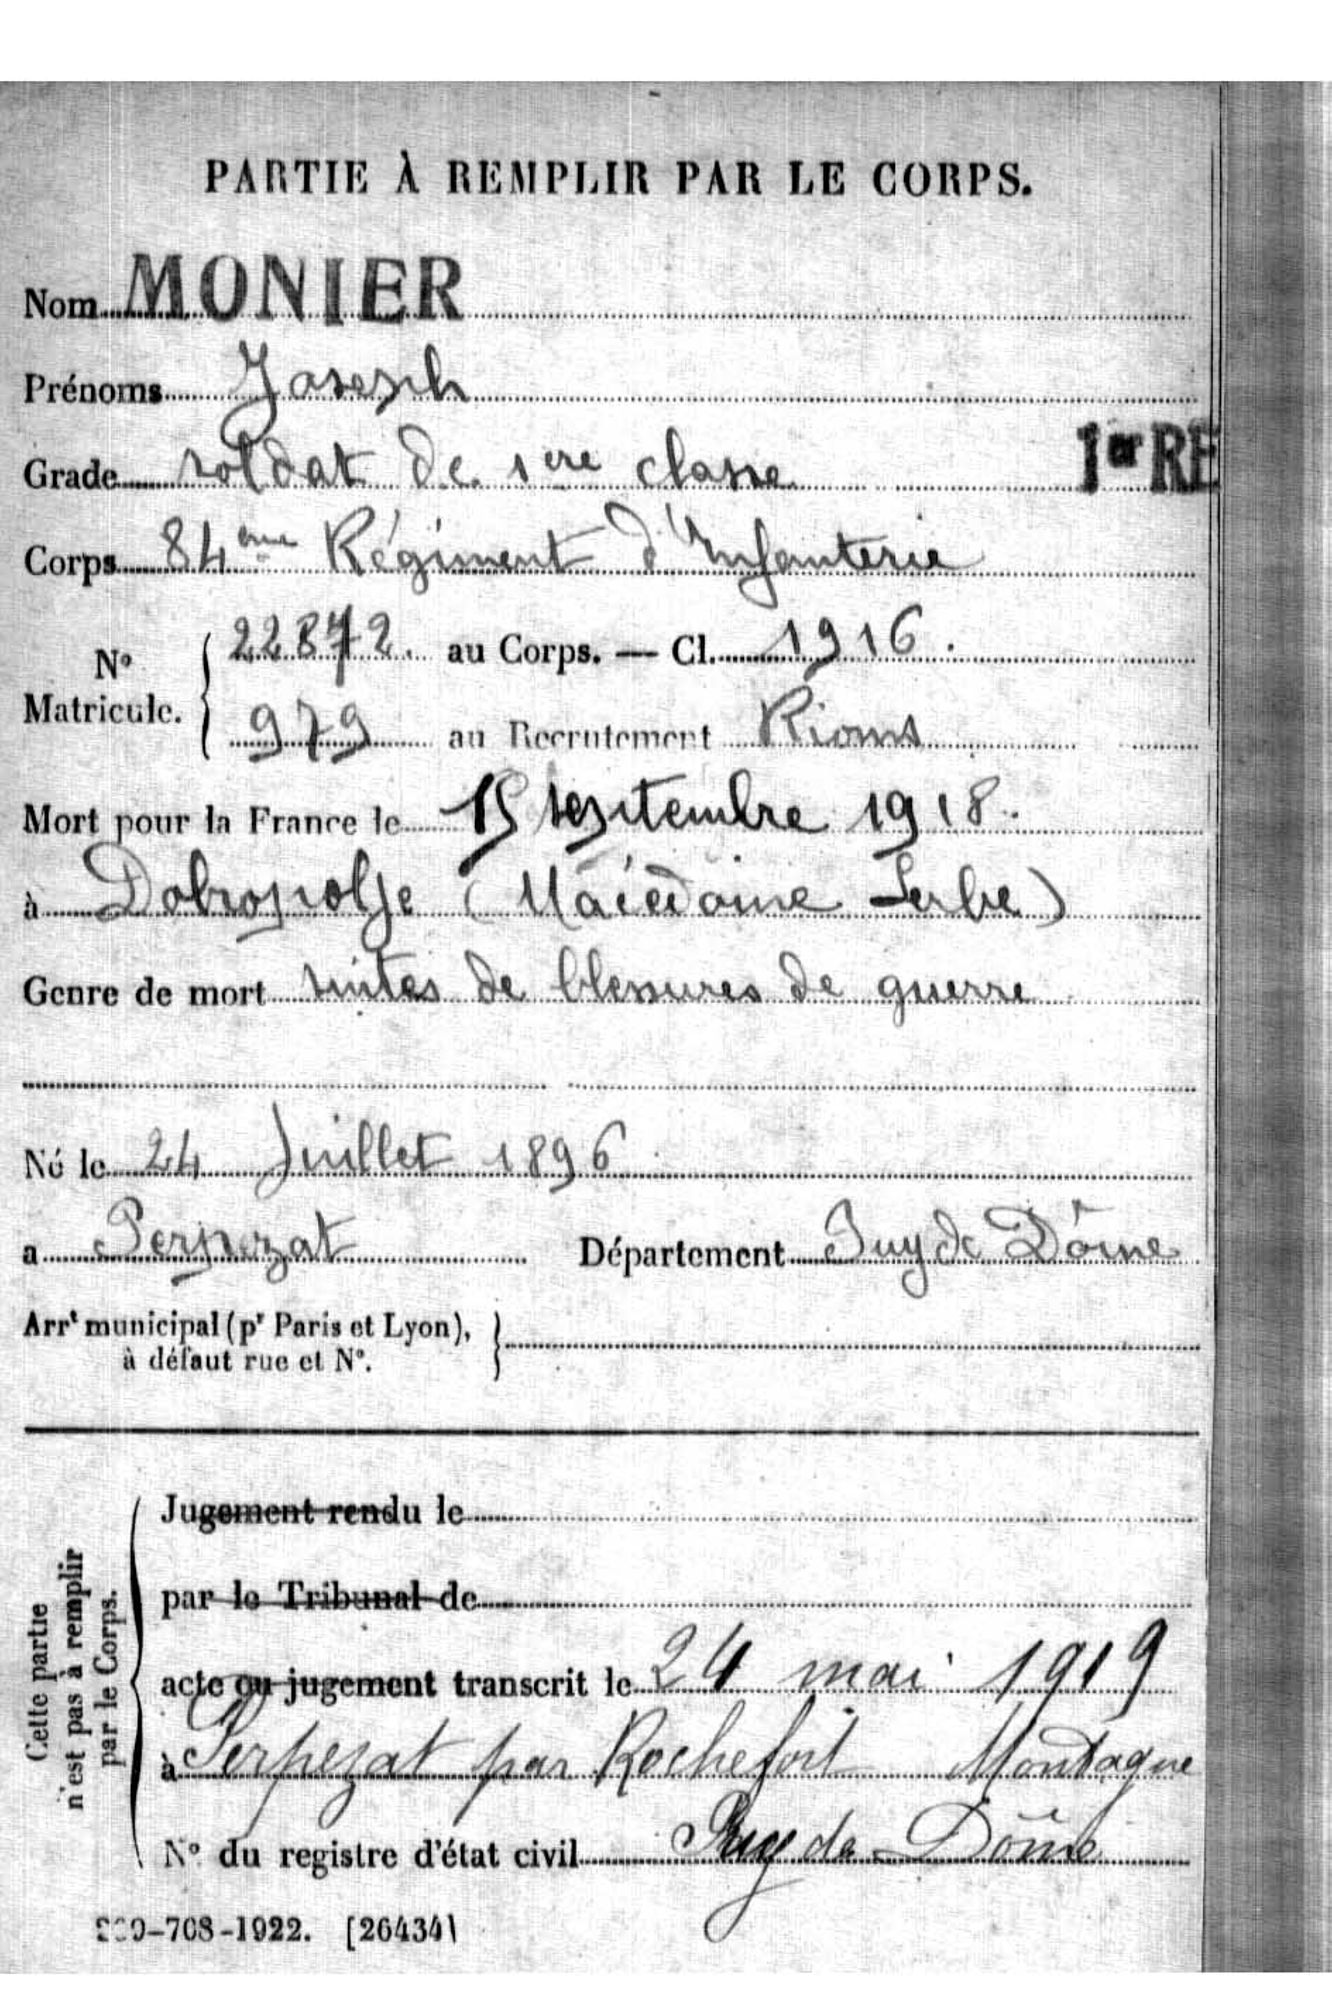 PARTIE À REMPLIR PAR LE CORPS.
Nom MONIER
Prénoms Joseph
Grade soldat de 1ere classe
1er RE
Corps 84eme Régiment d'Infanterie
N° Matricule. 22872. au Corps. — Cl. 1916.
979 au Recrutement Rioms
Mort pour la France le 15 septembre 1918.
à Dobropolje (Macédoine Serbe)
Genre de mort suites de blessures de guerre
Né le 24 Juillet 1896
a Perpezat Département Puy de Dôme
Arrt municipal (pr Paris et Lyon),
à défaut rue et N°.
Cette partie
n'est pas à remplir
par le Corps.
Jugement rendu le
par le Tribunal de
acte ou jugement transcrit le 24 mai 1919
à Perpezat par Rochefort Montagne
N° du registre d'état civil Puy de Dôme
-708-1922. [26434]